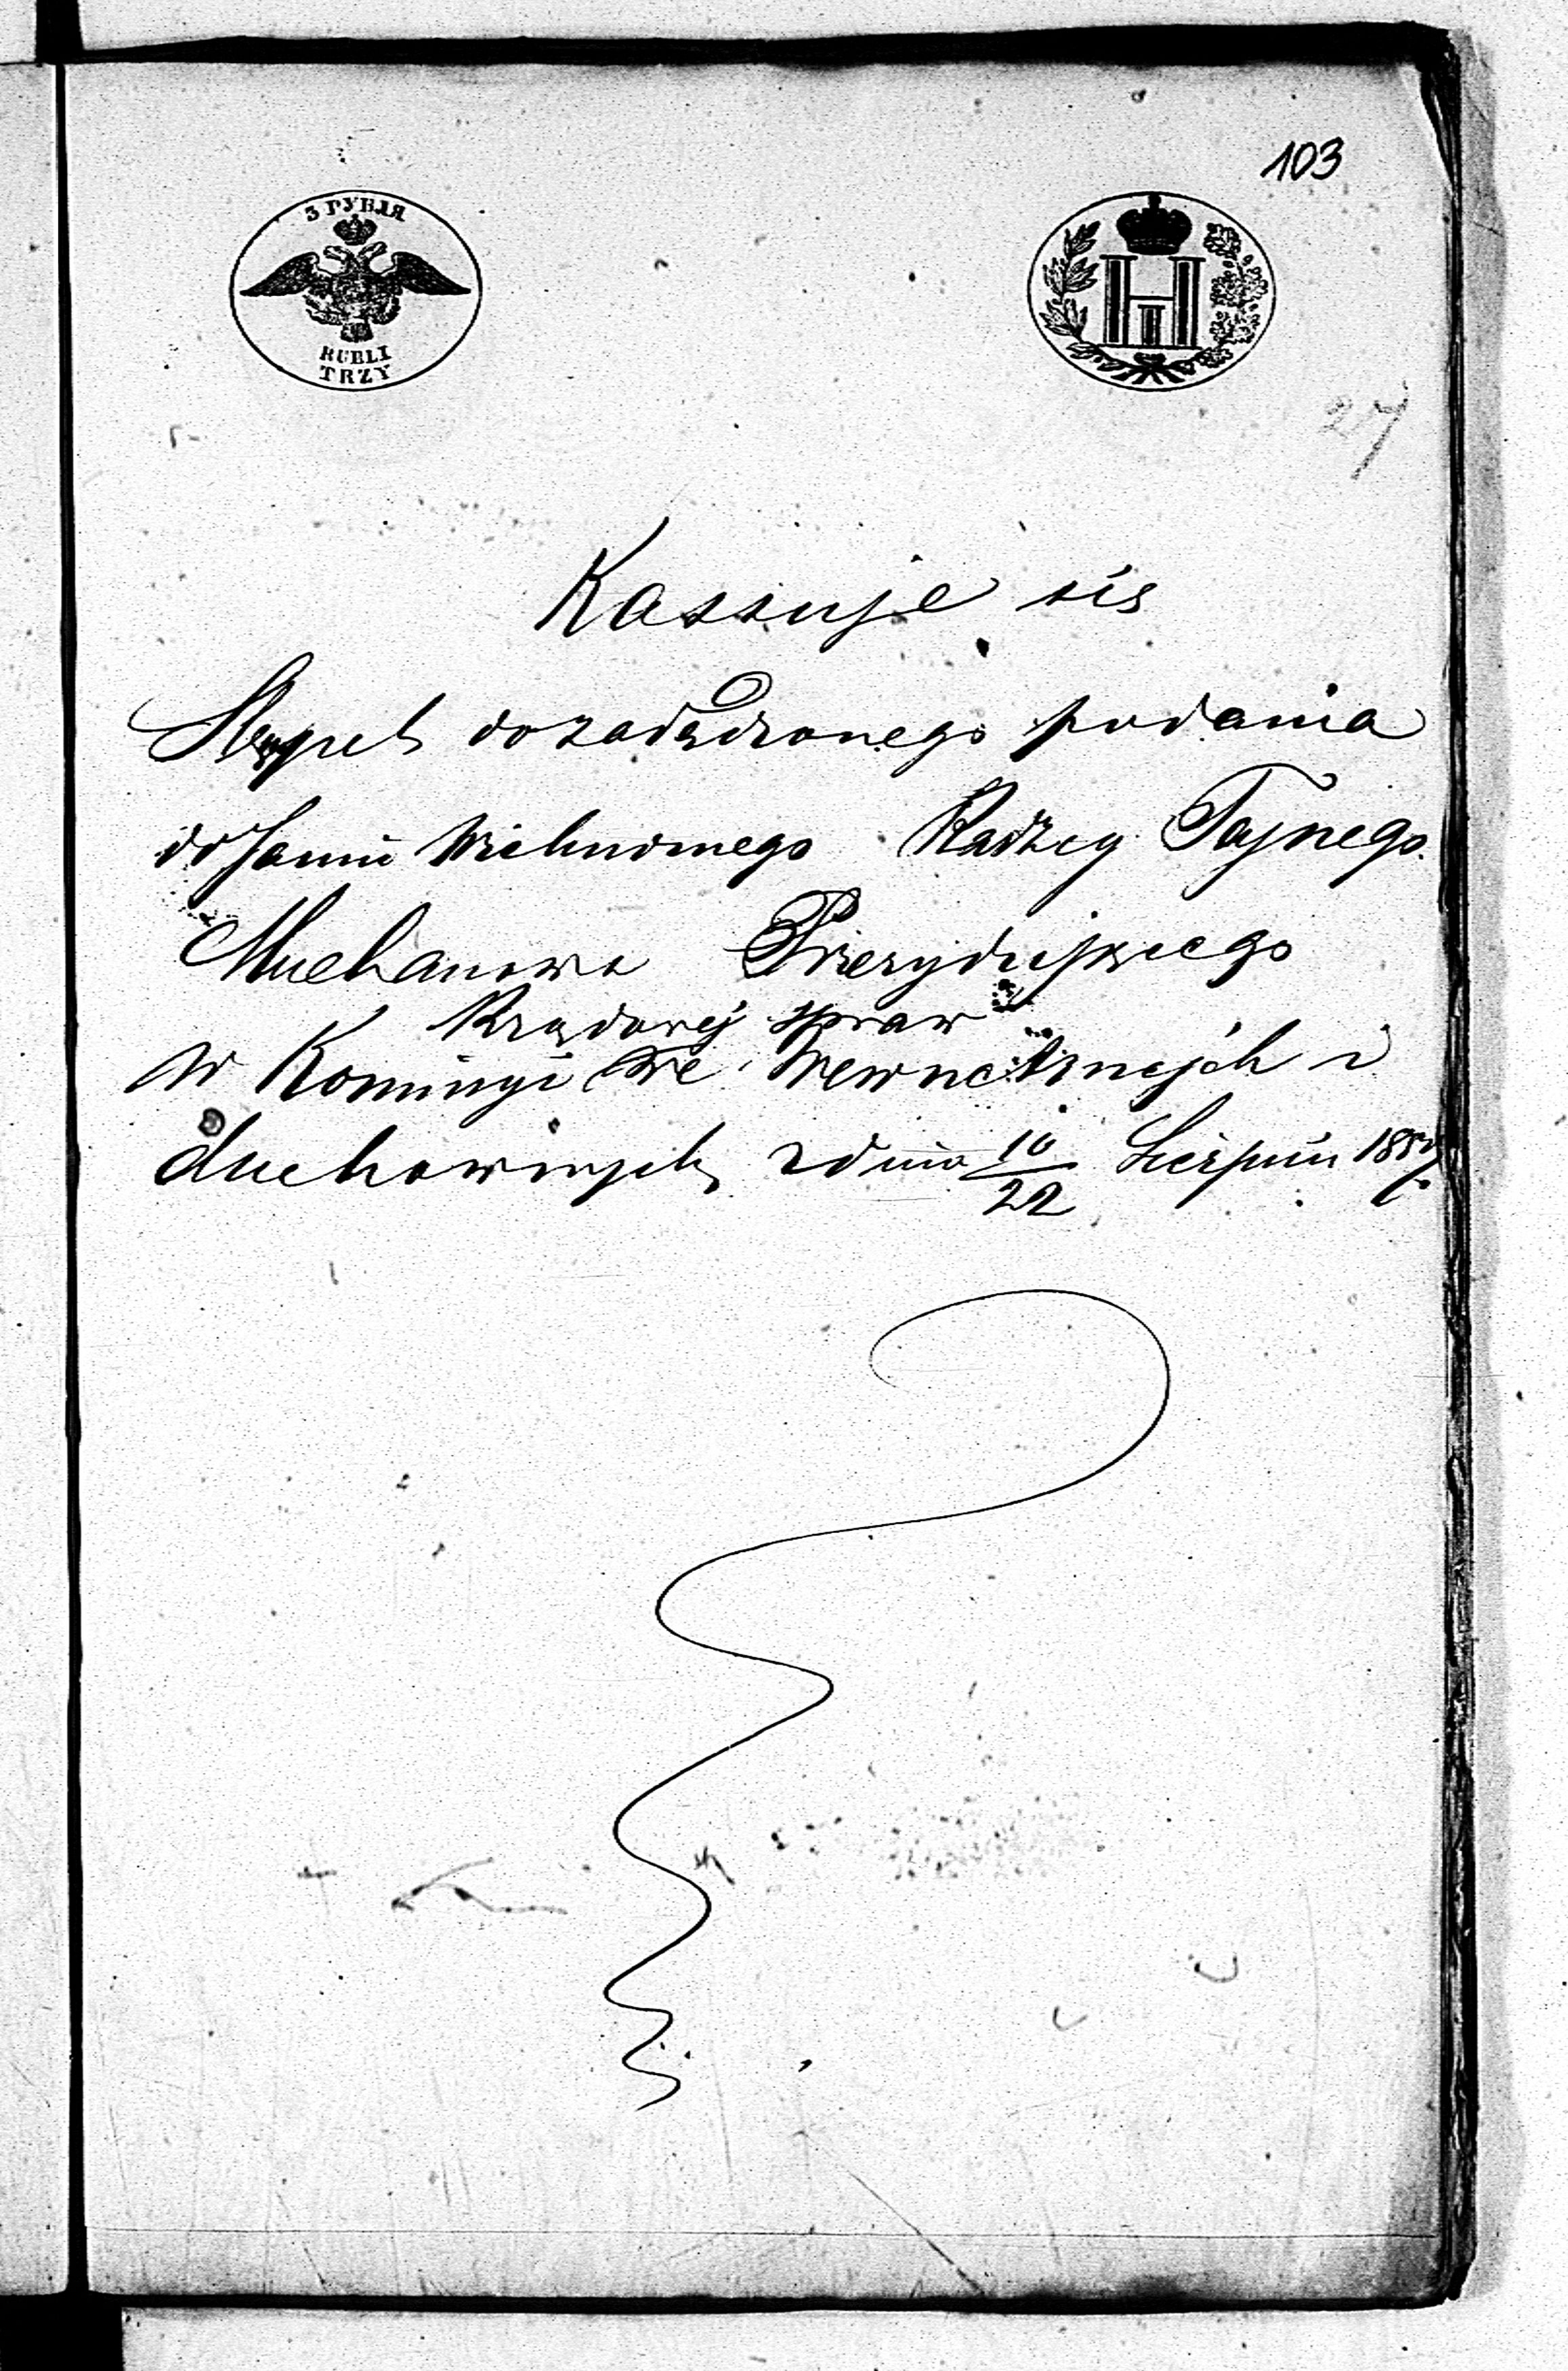 103
3 РУБЛЯ
RUBLI
TRZY
27
Kassuje się
Stępel do zadądzonego podania
do Jaśnie Wielmożnego Radzcy Tajnego
Muchanowa Prezydującego
Rządowej spraw
w Komissyi We Wewnetrznych i
duchownych z dnia 10/22 Sierpnia 1857